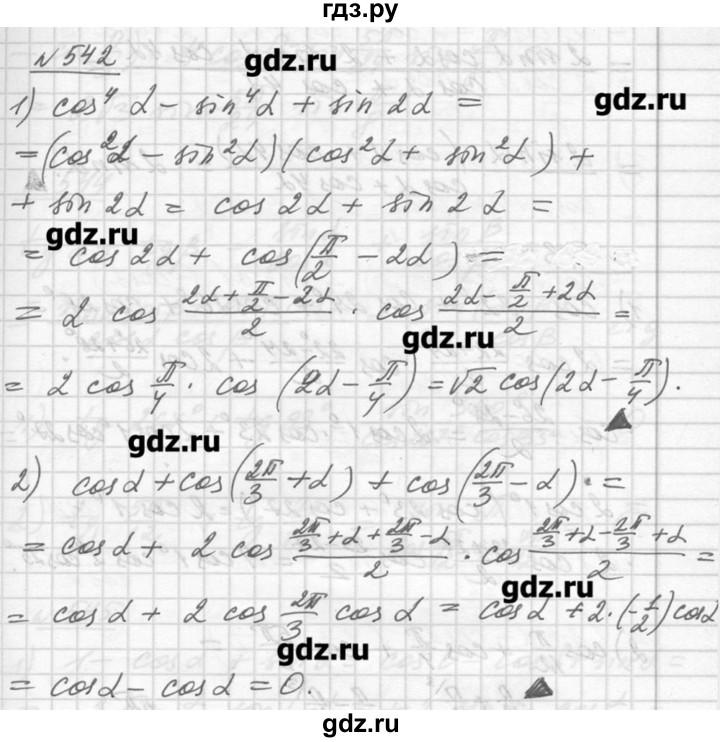 гдз.ру
№ 542
gdz.ru
1) cos⁴ α − sin⁴ α + sin 2α =
gdz.ru
= (cos² α − sin² α)(cos² α + sin² α) +
+ sin 2α = cos 2α + sin 2α =
gdz.ru
= cos 2α + cos(π/2 − 2α) =
= 2 cos (2α + π/2 − 2α)/2 · cos (2α − π/2 + 2α)/2 =
gdz.ru
= 2 cos π/4 · cos (2α − π/4) = √2 cos(2α − π/4).
gdz.ru
2) cos α + cos(2π/3 + α) + cos(2π/3 − α) =
= cos α + 2 cos (2π/3 + α + 2π/3 − α)/2 · cos (2π/3 + α − 2π/3 + α)/2 =
gdz.ru
= cos α + 2 cos 2π/3 cos α = cos α + 2·(−1/2) cos α
gdz.ru
= cos α − cos α = 0.
gdz.ru